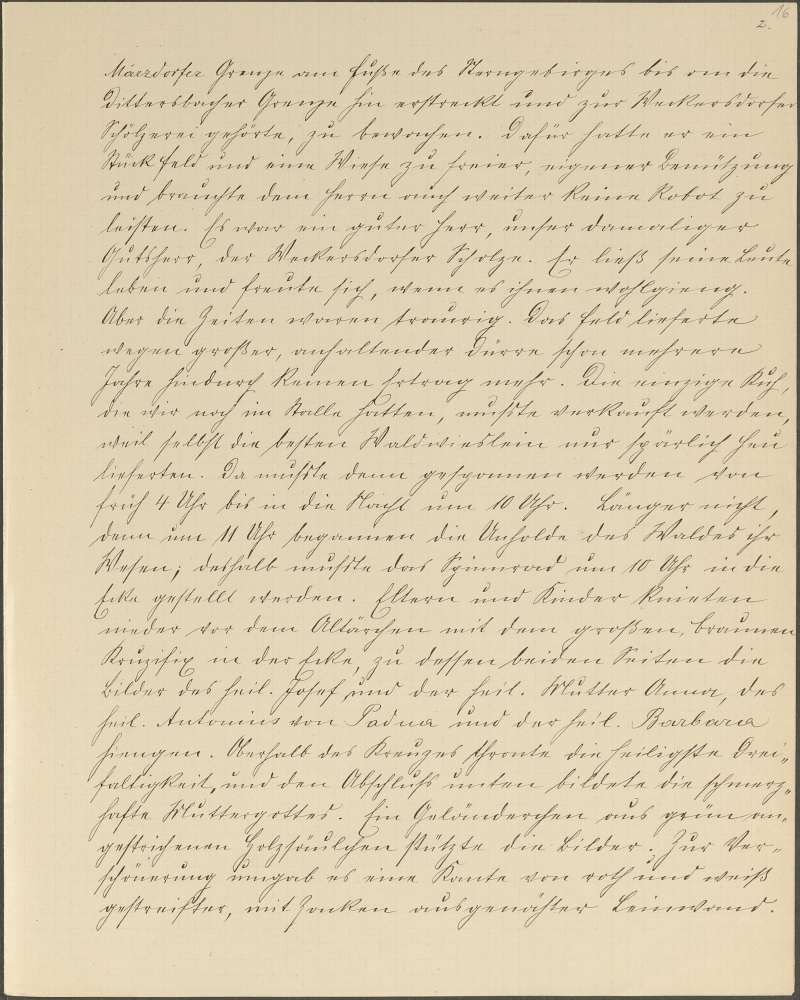 16
2.
Märzdorfer Grenze am Fuße des Sterngebirges bis an die
Dittersbacher Grenze hin erstreckt und zur Weckersdorfer
Schölzerei gehörte, zu bewachen. Dafür hatte er ein
Stück Feld und eine Wiese zu freier, eigener Benützung
und brauchte dem Herrn auch weiter keine Robot zu
leisten. Es war ein guter Herr, unser damaliger
Gutsherr, der Weckersdorfer Scholze. Er ließ seine Leute
leben und freute sich, wenn es ihnen wohlgieng.
Aber die Zeiten waren traurig. Das Feld lieferte
wegen großer, anhaltender Dürre schon mehrere
Jahre hindurch keinen Ertrag mehr. Die einzige Kuh,
die wir noch im Stalle hatten, mußte verkauft werden,
weil selbst die besten Waldwieslein nur spärlich Heu
lieferten. Da mußte denn gesponnen werden von
früh 4 Uhr bis in die Nacht um 10 Uhr. Länger nicht,
denn um 11 Uhr begannen die Unholde des Waldes ihr
Wesen; deshalb mußte das Spinnrad um 10 Uhr in die
Ecke gestellt werden. Eltern und Kinder knieten
nieder vor dem Altärchen mit dem großen, braunen
Kruzifix in der Ecke, zu dessen beiden Seiten die
Bilder des heil. Josef und der heil. Mutter Anna, des
heil. Antonius von Padua und der heil. Barbara
hiengen. Oberhalb des Kreuzes thronte die heiligste Drei-
faltigkeit, und den Abschluß unten bildete die schmerz-
hafte Muttergottes. Ein Geländerchen aus grün an-
gestrichenen Holzsäulchen stützte die Bilder. Zur Ver-
schönerung umgab es eine Kante von roth und weiß
gestreifter, mit Zacken ausgenähter Leinwand.